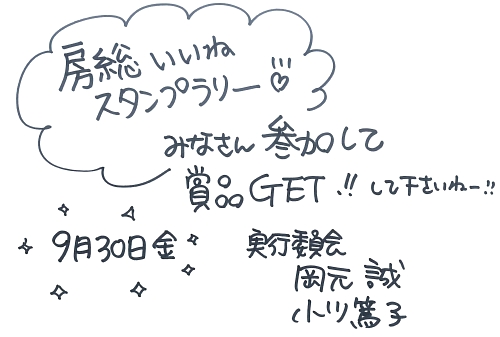 房総いいね
スタンプラリー♡
みなさん参加して
賞品GET!! して下さいねー!!
9月30日金
実行委員会
岡元 誠
小ツ篤子